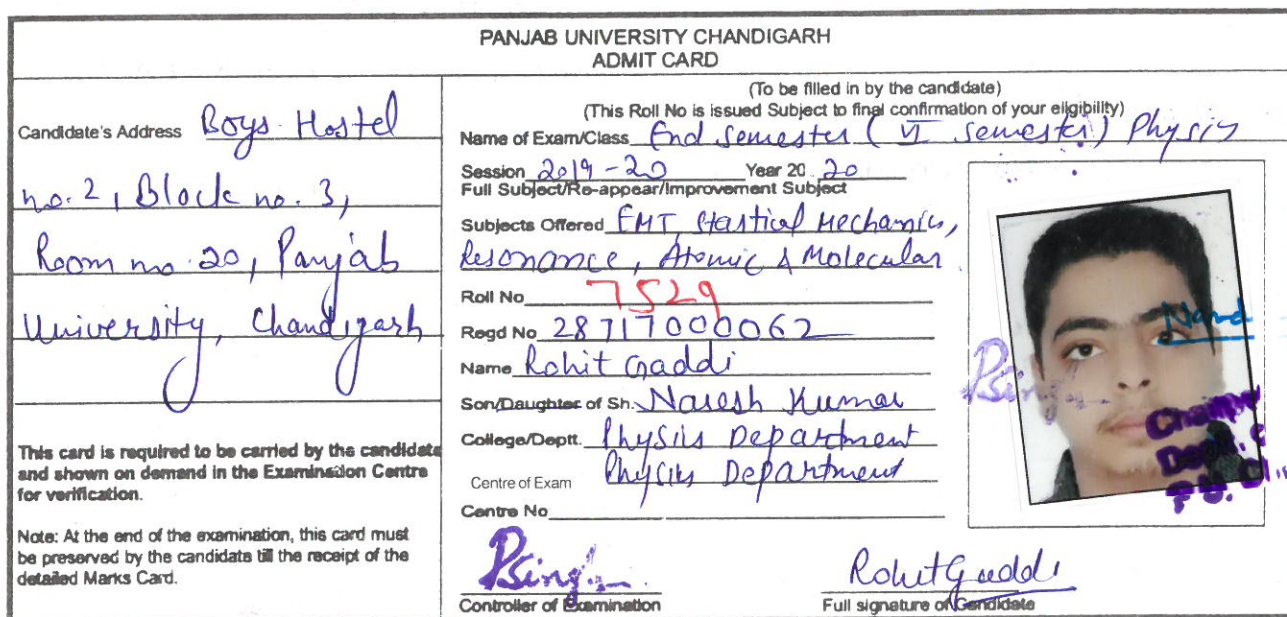 PANJAB UNIVERSITY CHANDIGARH
ADMIT CARD
Candidate's Address Boys Hostel
no. 2, Block no. 3,
Room no. 20, Panjab
University, Chandigarh
This card is required to be carried by the candidate
and shown on demand in the Examination Centre
for verification.
Note: At the end of the examination, this card must
be preserved by the candidate till the receipt of the
detailed Marks Card.
(To be filled in by the candidate)
(This Roll No is issued Subject to final confirmation of your eligibility)
Name of Exam/Class End Semester (VI semester) Physics
Session 2019-20 Year 20 20
Full Subject/Re-appear/Improvement Subject
Subjects Offered EMT, Stastical Mechanics,
Resonance, Atomic & Molecular
Roll No 7529
Regd No 28717000062
Name Rohit Gaddi
Son/Daughter of Sh. Naresh Kumar
College/Deptt. Physics Department
Centre of Exam Physics Department
Centre No
PSingh
Controller of Examination
Rohit Gaddi
Full signature of Candidate
PSingh